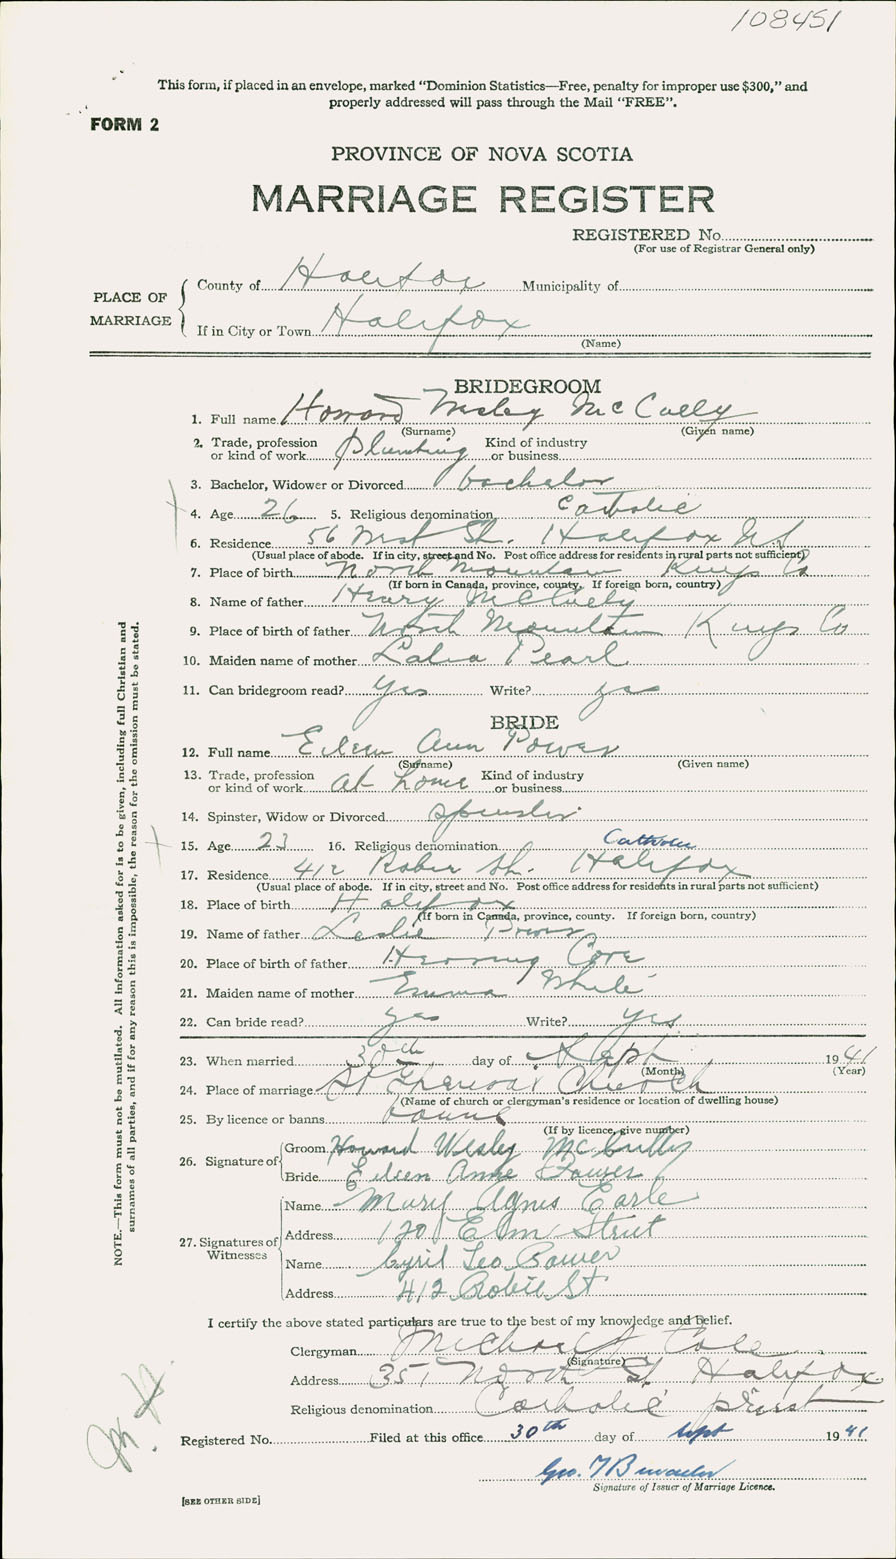 108451
This form, if placed in an envelope, marked "Dominion Statistics—Free, penalty for improper use $300," and
properly addressed will pass through the Mail "FREE".
FORM 2
PROVINCE OF NOVA SCOTIA
MARRIAGE REGISTER
REGISTERED No.
(For use of Registrar General only)
PLACE OF MARRIAGE
County of Halifax Municipality of
If in City or Town Halifax
(Name)
BRIDEGROOM
1. Full name Howard Wesley McCully
(Surname) (Given name)
2. Trade, profession or kind of work Plumbing Kind of industry or business
3. Bachelor, Widower or Divorced bachelor
4. Age 26 5. Religious denomination Catholic
6. Residence 56 West St. Halifax N.S.
(Usual place of abode. If in city, street and No. Post office address for residents in rural parts not sufficient)
7. Place of birth North Mountain Kings Co
(If born in Canada, province, county. If foreign born, country)
8. Name of father Henry McCully
9. Place of birth of father North Mountain Kings Co
10. Maiden name of mother Pearl
11. Can bridegroom read? yes Write? yes
BRIDE
12. Full name Eileen Ann Power
(Surname) (Given name)
13. Trade, profession or kind of work at home Kind of industry or business
14. Spinster, Widow or Divorced spinster
15. Age 23 16. Religious denomination Catholic
17. Residence 412 Robie St. Halifax
(Usual place of abode. If in city, street and No. Post office address for residents in rural parts not sufficient)
18. Place of birth Halifax
(If born in Canada, province, county. If foreign born, country)
19. Name of father Leslie Power
20. Place of birth of father Herring Cove
21. Maiden name of mother Emma White
22. Can bride read? yes Write? yes
23. When married 30th day of Sept 1941
(Month) (Year)
24. Place of marriage St Theresa's Church
(Name of church or clergyman's residence or location of dwelling house)
25. By licence or banns banns
(If by licence, give number)
26. Signature of
Groom Howard Wesley McCully
Bride Eileen Anne Power
27. Signatures of Witnesses
Name Mary Agnes Earle
Address 120 Elm Street
Name Cyril Leo Power
Address 412 Robie St
I certify the above stated particulars are true to the best of my knowledge and belief.
Clergyman Michael Cole
(Signature)
Address 351 North St Halifax
Religious denomination Catholic priest
Registered No. Filed at this office 30th day of Sept 1941
Geo.
Signature of Issuer of Marriage Licence.
[SEE OTHER SIDE]
NOTE.—This form must not be mutilated. All information asked for is to be given, including full Christian and
surnames of all parties, and if for any reason this is impossible, the reason for the omission must be stated.